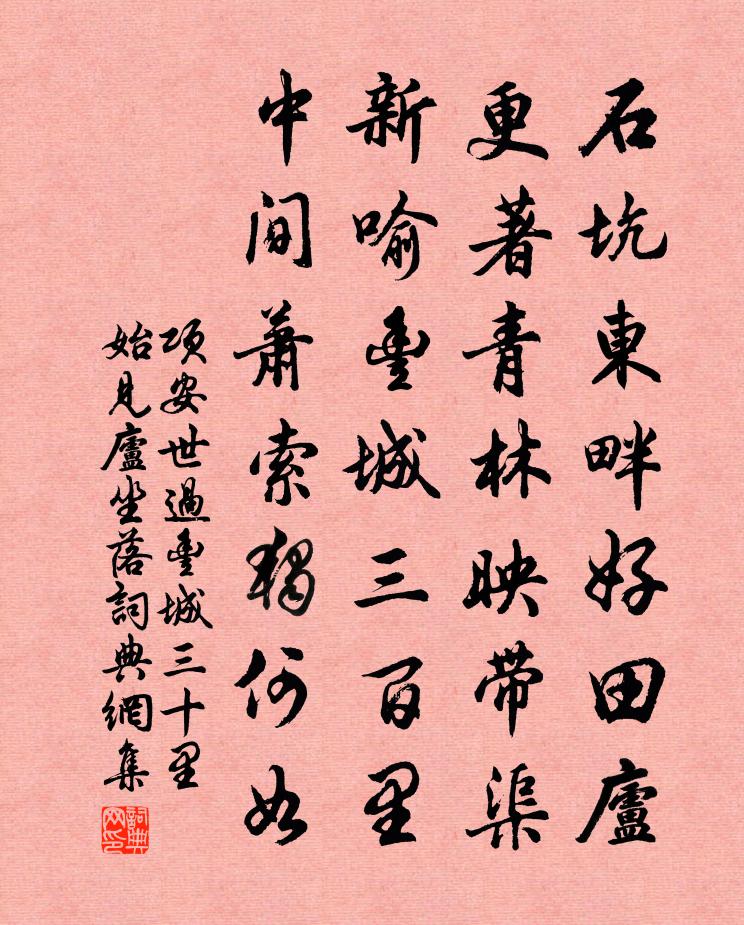 石坑東畔好田廬
更著青林映帶渠
新喻豊城三百里
中間蕭索獨何如
項安世過豊城三十里
始見廬坐落詞典網集
詞典网印